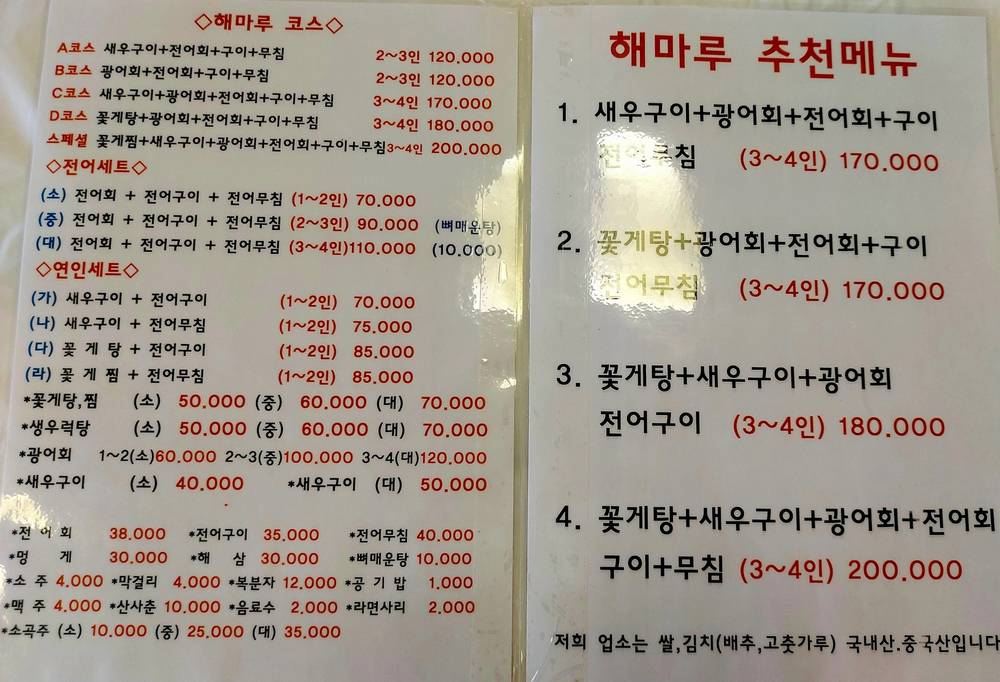 ◇해마루 코스◇
A코스 새우구이+전어회+구이+무침 2~3인 120.000
B코스 광어회+전어회+구이+무침 2~3인 120.000
C코스 새우구이+광어회+전어회+구이+무침 3~4인 170.000
D코스 꽃게탕+광어회+전어회+구이+무침 3~4인 180.000
스페셜 꽃게찜+새우구이+광어회+전어회+구이+무침3~4인 200.000
◇전어세트◇
(소) 전어회 + 전어구이 + 전어무침 (1~2인) 70.000
(중) 전어회 + 전어구이 + 전어무침 (2~3인) 90.000 (뼈매운탕)
(대) 전어회 + 전어구이 + 전어무침 (3~4인)110.000 (10.000)
◇연인세트◇
(가) 새우구이 + 전어구이 (1~2인) 70.000
(나) 새우구이 + 전어무침 (1~2인) 75.000
(다) 꽃 게 탕 + 전어구이 (1~2인) 85.000
(라) 꽃 게 찜 + 전어무침 (1~2인) 85.000
*꽃게탕,찜 (소) 50.000 (중) 60.000 (대) 70.000
*생우럭탕 (소) 50.000 (중) 60.000 (대) 70.000
*광어회 1~2(소)60.000 2~3(중)100.000 3~4(대)120.000
*새우구이 (소) 40.000 *새우구이 (대) 50.000
*전 어 회 38.000 *전어구이 35.000 *전어무침 40.000
*멍 게 30.000 *해 삼 30.000 *뼈매운탕 10.000
*소 주 4.000 *막걸리 4.000 *복분자 12.000 *공 기 밥 1.000
*맥 주 4.000 *산사춘 10.000 *음료수 2.000 *라면사리 2.000
*소곡주 (소) 10.000 (중) 25.000 (대) 35.000
해마루 추천메뉴
1. 새우구이+광어회+전어회+구이
전어무침 (3~4인) 170.000
2. 꽃게탕+광어회+전어회+구이
전어무침 (3~4인) 170.000
3. 꽃게탕+새우구이+광어회
전어구이 (3~4인) 180.000
4. 꽃게탕+새우구이+광어회+전어회
구이+무침 (3~4인) 200.000
저희 업소는 쌀,김치(배추,고춧가루) 국내산.중국산입니다